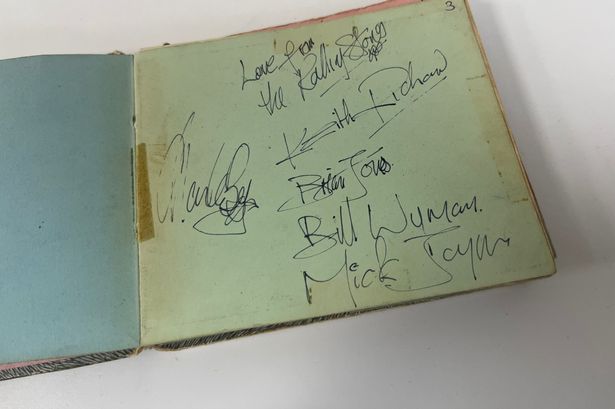 3
Love from
the Rolling Stones
Keith Richard
Brian Jones
Bill Wyman.
Mick